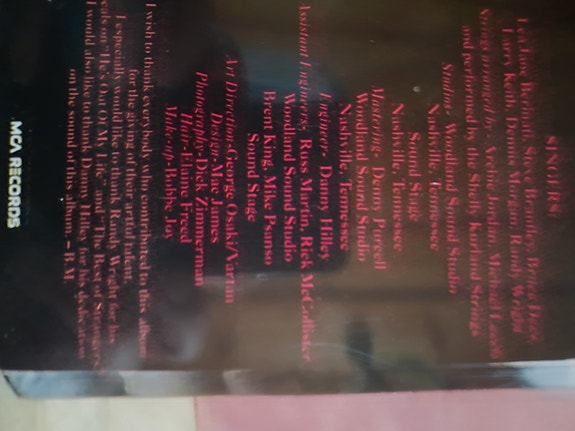 SINGERS:
Lea Jane Berinati, Steve Brantley, Bruce Dees,
Larry Keith, Dennis Morgan, Randy Wright
Strings arranged by- Archie Jordan, Michael
and performed by the Shelly Kurland Strings
Studio- Woodland Sound Studio
Nashville, Tennessee
Sound Stage
Nashville, Tennessee
Mastering- Denny Purcell
Woodland Sound Studio
Nashville, Tennessee
Engineer- Danny Hilley
Assistant Engineers- Russ Martin, Rick McCollister
Woodland Sound Studio
Brent King, Mike Psanso
Sound Stage
Art Direction-George Osaki/Vartan
Design-Mae James
Photography-Dick Zimmerman
Hair- Elaine Freed
Make-up- Bobbe Joy
I wish to thank everybody who contributed to this album
for the giving of their artful talent.
I especially would like to thank Randy Wright for his
vocals on "He's Out Of My Life" and "The Best of Strangers"
I would also like to thank Danny Hilley for his dedication
on the sound of this album. – B.M.
MCA RECORDS